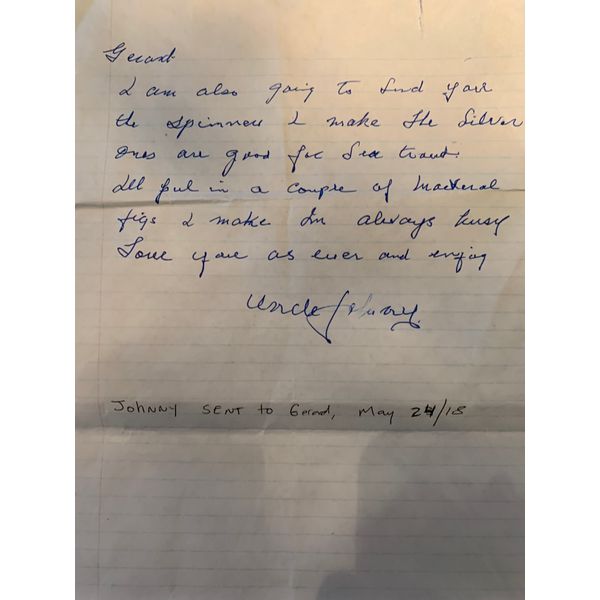 Gerard
I am also going to send you
the spinners I make the Silver
ones are good for Sea trout.
Ill put in a couple of Mackeral
jigs I make Im always busy
Love you as ever and enjoy
Uncle Johnny
JOHNNY SENT to Gerard, May 24/18